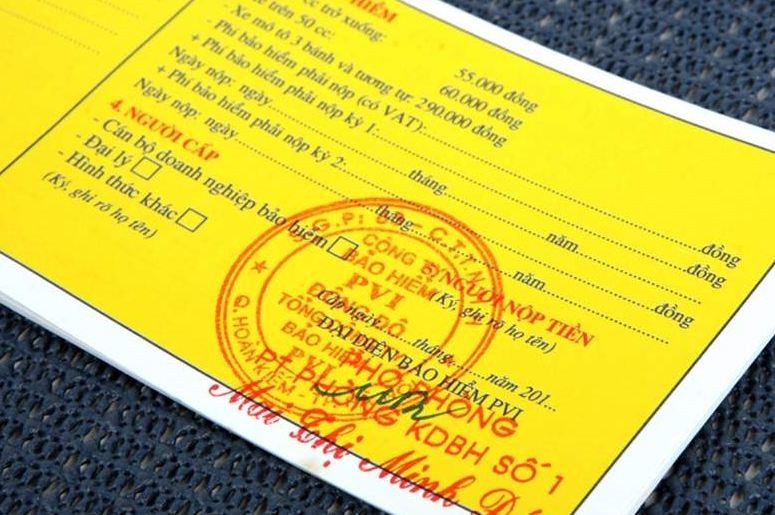 HIỂM
cc trở xuống:
55.000 đồng
xe trên 50 cc:
60.000 đồng
- Xe mô tô 3 bánh và tương tự:
290.000 đồng
+ Phí bảo hiểm phải nộp (có VAT):......đồng
+ Phí bảo hiểm phải nộp kỳ 1:......đồng
Ngày nộp: ngày......tháng......năm......
+ Phí bảo hiểm phải nộp kỳ 2......đồng
Ngày nộp: ngày......tháng......năm......
4. NGƯỜI CẤP
- Cán bộ doanh nghiệp bảo hiểm
- Đại lý
- Hình thức khác
(Ký, ghi rõ họ tên)
NGƯỜI NỘP TIỀN
(Ký, ghi rõ họ tên)
Cấp ngày......tháng......năm 201...
ĐẠI DIỆN BẢO HIỂM PVI
CÔNG TY
BẢO HIỂM
PVI
ĐÔNG ĐÔ
TỔNG
BẢO HIỂM
PVI
Q. HOÀN KIẾM
PHÓ PHÒNG
PT PHÒNG KDBH SỐ 1
Mai Thị Minh